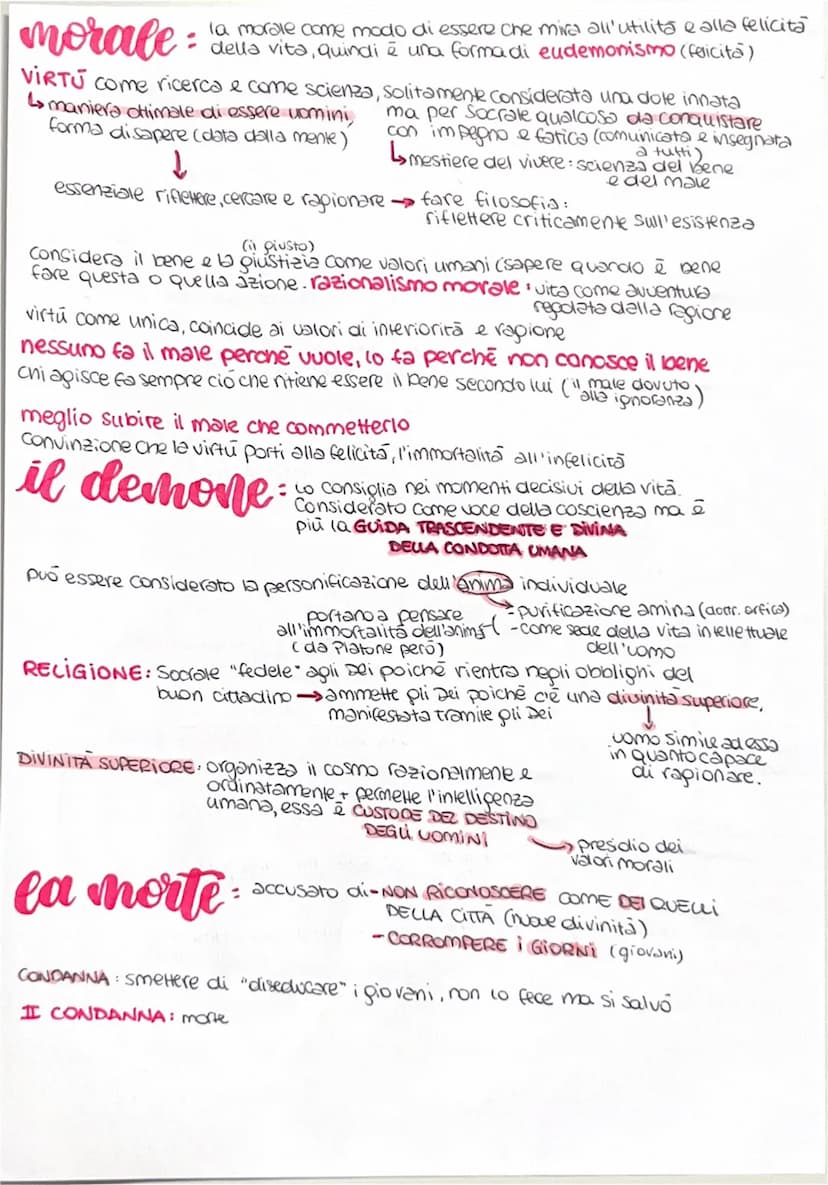 morale: la morale come modo di essere che mira all'utilità e alla felicità
della vita, quindi è una forma di eudemonismo (felicità)
VIRTÙ come ricerca e come scienza, solitamente considerata una dote innata
↳ maniera ottimale di essere uomini ma per Socrate qualcosa da conquistare
forma di sapere (data dalla mente) con impegno e fatica (comunicata e insegnata
a tutti)
↳ mestiere del vivere: scienza del bene
e del male
↓
essenziale riflettere, cercare e ragionare → fare filosofia:
riflettere criticamente sull'esistenza
(il giusto)
Considera il bene e la giustizia come valori umani (sapere quando è bene
fare questa o quella azione. razionalismo morale: vita come avventura
regolata dalla ragione
virtù come unica, coincide ai valori di interiorità e ragione
nessuno fa il male perché vuole, lo fa perché non conosce il bene
chi agisce fa sempre ciò che ritiene essere il bene secondo lui (il male dovuto
alla ignoranza)
meglio subire il male che commetterlo
Convinzione che la virtù porti alla felicità, l'immortalità all'infelicità
il demone: lo consiglia nei momenti decisivi della vita.
Considerato come voce della coscienza ma è
più la GUIDA TRASCENDENTE E DIVINA
DELLA CONDOTTA UMANA
può essere considerato la personificazione dell'anima individuale
portano a pensare - purificazione amina (dottr. orfica)
all'immortalità dell'anima - come sede della vita intellettuale
(da Platone però) dell'uomo
RELIGIONE: Socrate "fedele" agli Dei poiché rientra negli obblighi del
buon cittadino → ammette gli Dei poiché c'è una divinità superiore,
manifestata tramite gli Dei
↓
uomo simile ad essa
in quanto capace
di ragionare.
DIVINITÀ SUPERIORE: organizza il cosmo razionalmente e
ordinatamente + permette l'intelligenza
umana, essa è CUSTODE DEL DESTINO
DEGLI UOMINI
→ presidio dei
valori morali
la morte: accusato di - NON RICONOSCERE COME DEI QUELLI
DELLA CITTÀ (nuove divinità)
- CORROMPERE i GIORNI (giovani)
CONDANNA: smettere di "diseducare" i giovani, non lo fece ma si salvò
II CONDANNA: morte